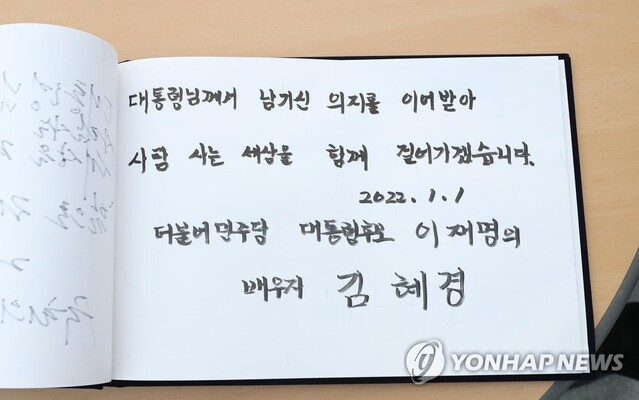 대통령님께서 남기신 의지를 이어받아
사람 사는 세상을 함께 짊어가겠습니다.
2022. 1. 1
더불어민주당 대통령후보 이재명의
배우자 김혜경
YONHAP NEWS